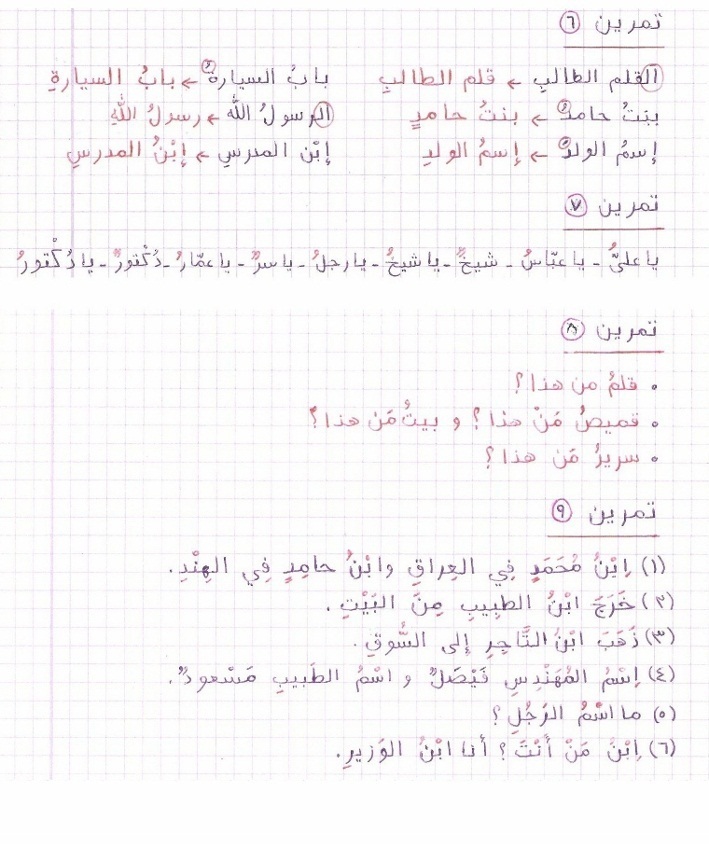 تمرين ٦
القلم الطالبِ ← قلم الطالبِ    بابُ السيارةُ ← بابُ السيارةِ
بنتُ حامدٌ ← بنتُ حامدٍ    الرسولُ الله ← رسولُ اللهِ
إسمُ الولدُ ← إسمُ الولدِ    إبْن المدرسِ ← إبْنُ المدرسِ
تمرين ٧
يا عليُّ - يا عبّاسُ - شيخٌ - يا شيخُ - يا رجلُ - ياسرٌ - يا عمّارُ - دُكْتورٌ - يا دُكْتورُ
تمرين ٨
• قلمُ من هذا؟
• قميصُ مَنْ هذا؟ و بيتُ مَن هذا؟
• سريرُ مَن هذا؟
تمرين ٩
(١) اِبْنُ مُحَمَدٍ فِي العِراقِ وابْنُ حامِدٍ فِي الهِنْدِ.
(٢) خَرَجَ ابْنُ الطبِيبِ مِنَ البَيْتِ.
(٣) ذَهَبَ ابْنُ التَّاجِرِ إلى السُّوقِ.
(٤) اِسْمُ المُهَنْدِسِ فَيْصَلٌ و اسْمُ الطَبيبِ مَسْعودٌ.
(٥) ما اسْمُ الرَجُلِ؟
(٦) اِبْنُ مَنْ أنْتَ؟ أنا ابْنُ الوَزيرِ.